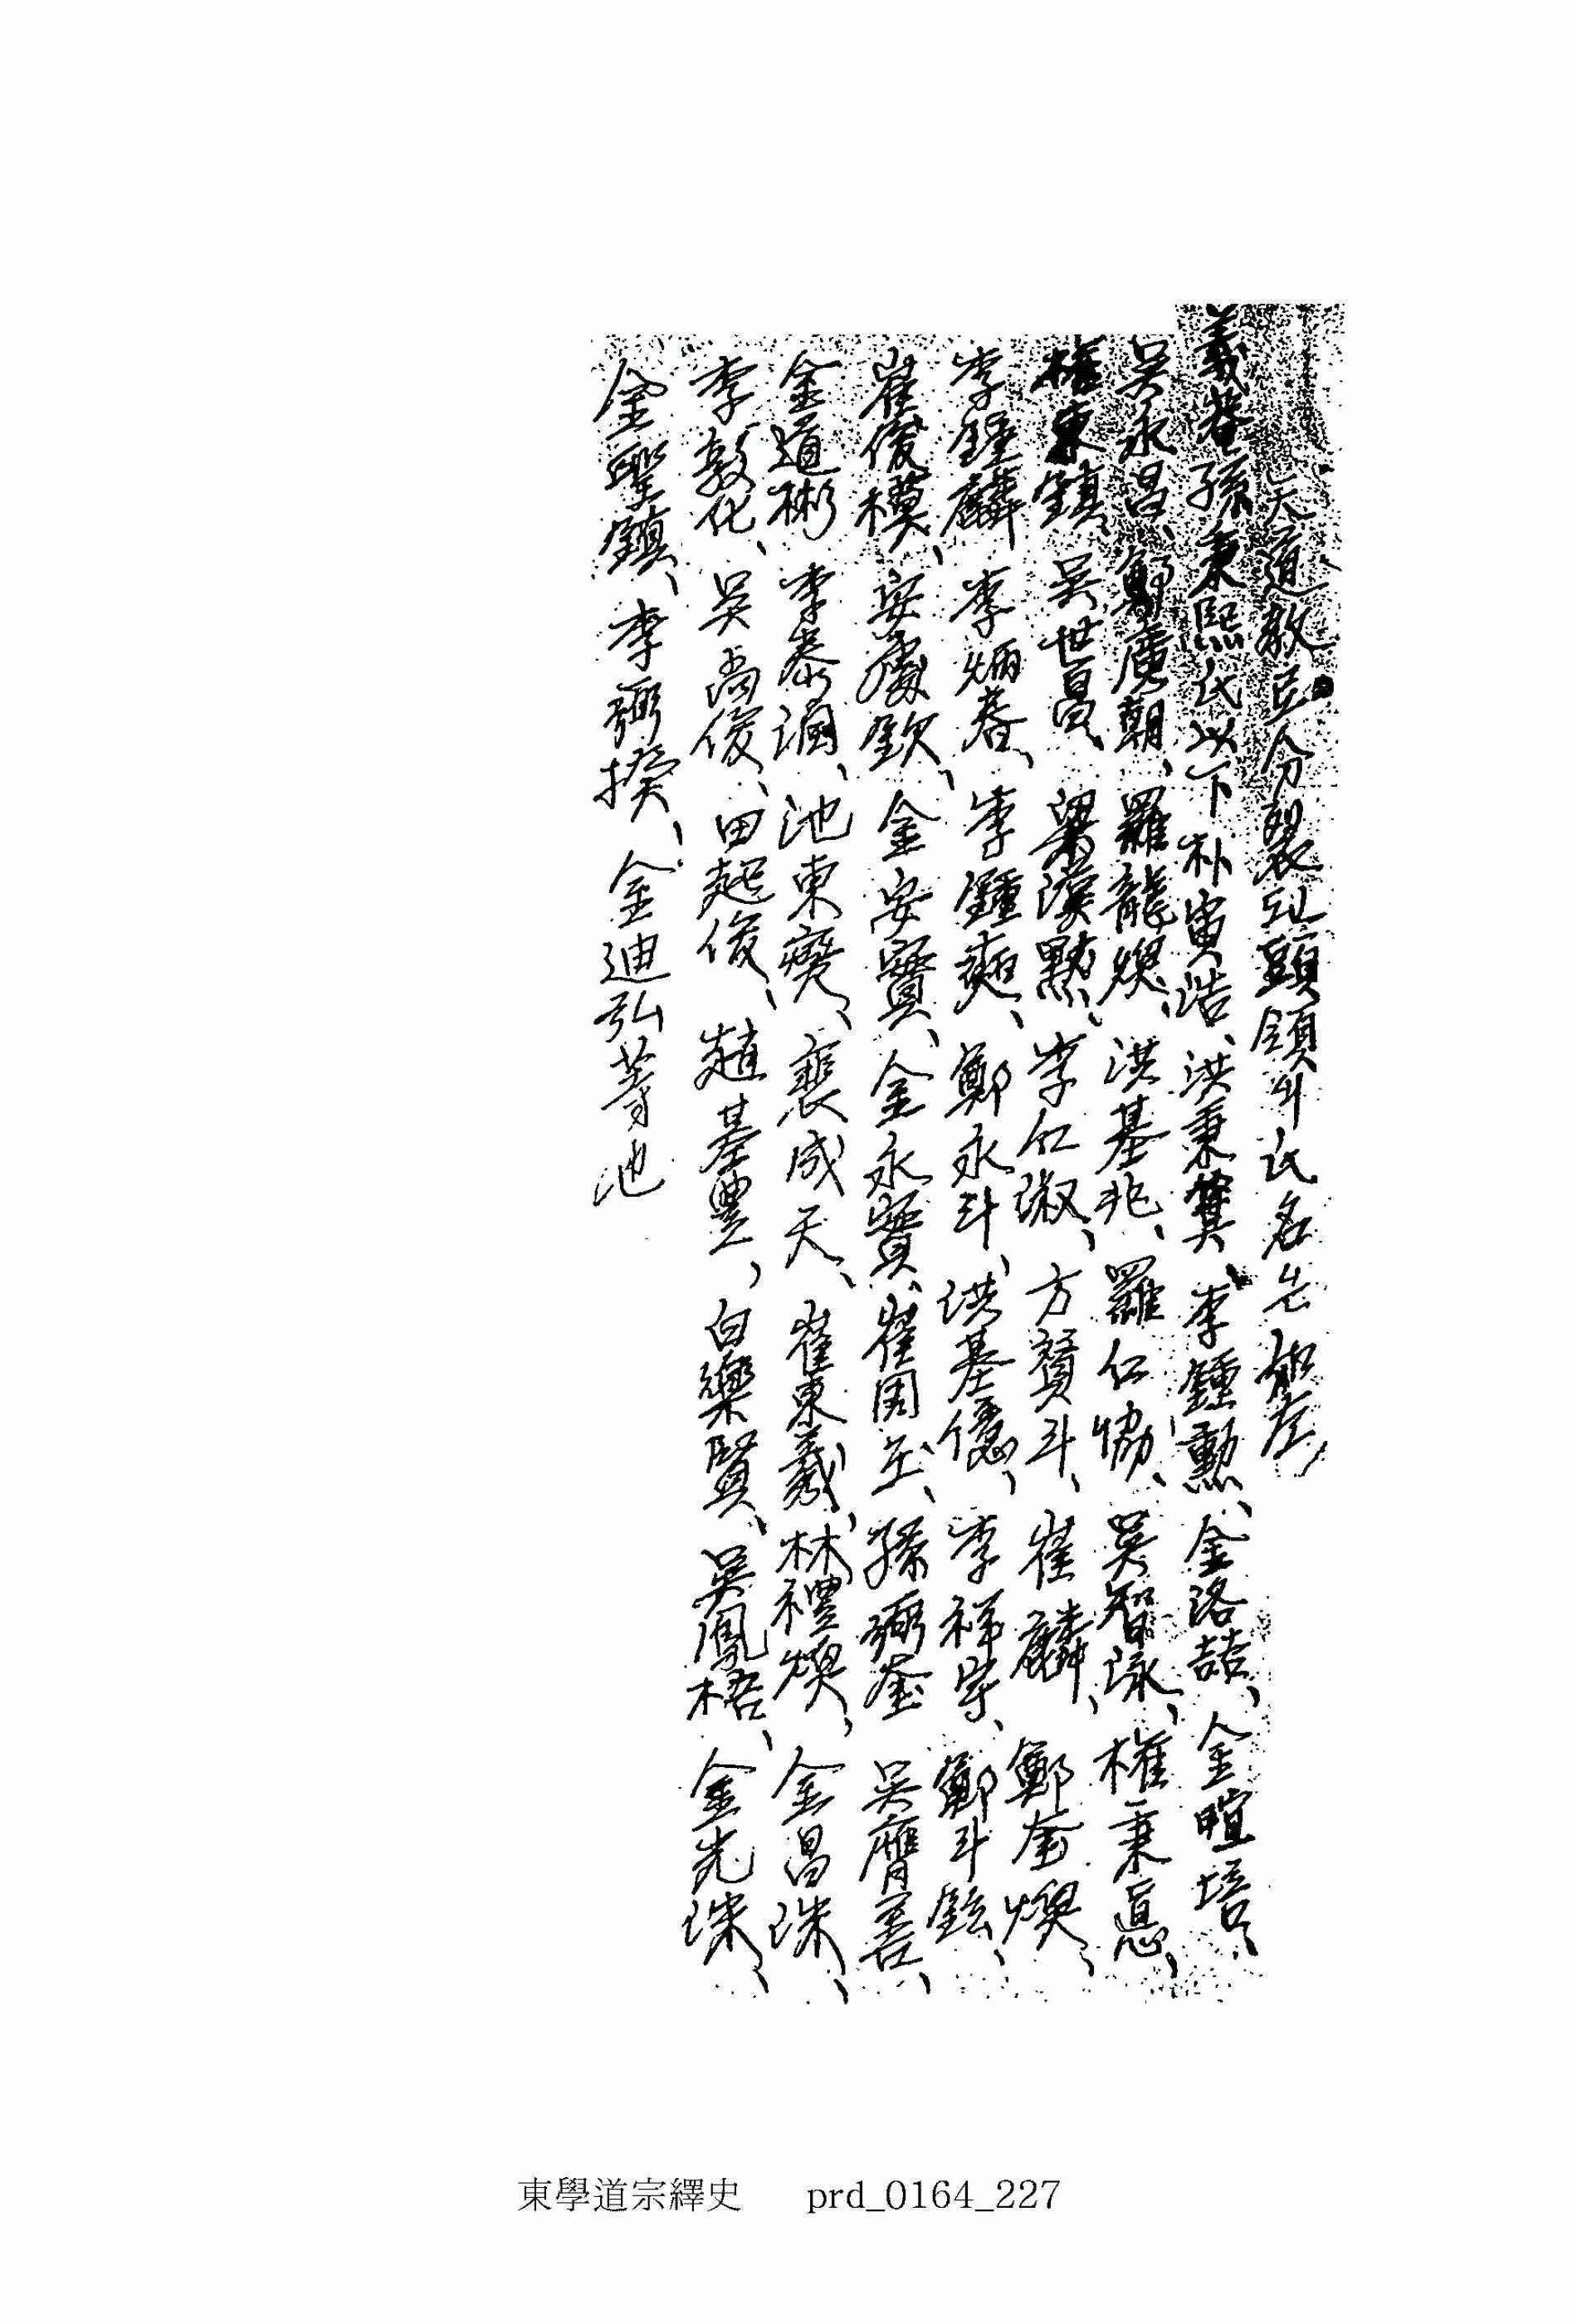 天道教로分裂된頭領의氏名은如左
義菴孫秉熙氏以下朴寅浩、洪秉箕、李鍾勳、金洛喆、金暄培、
吳永昌、鄭廣朝、羅龍煥、洪基兆、羅仁協、吳智泳、權秉悳、
權東鎮、吳世昌、梁漢默、李仁淑、方贊斗、崔麟、鄭奎煥、
李鍾麟 李炳春、李鍾奭、鄭永斗、洪基億、李祥宇、鄭斗鉉、
崔俊模、安處欽、金安實、金永實、崔周 孫弼奎 吳膺善、
金道彬 李泰潤、池東燮、裵成天、崔東羲、林禮煥、金昌洙、
李敦化、吳尚俊、田起俊、趙基豐、白樂賢、吳鳳梧、金光洙、
金聖鎮、李弼揆、金迪弘等也
東學道宗繹史 prd_0164_227